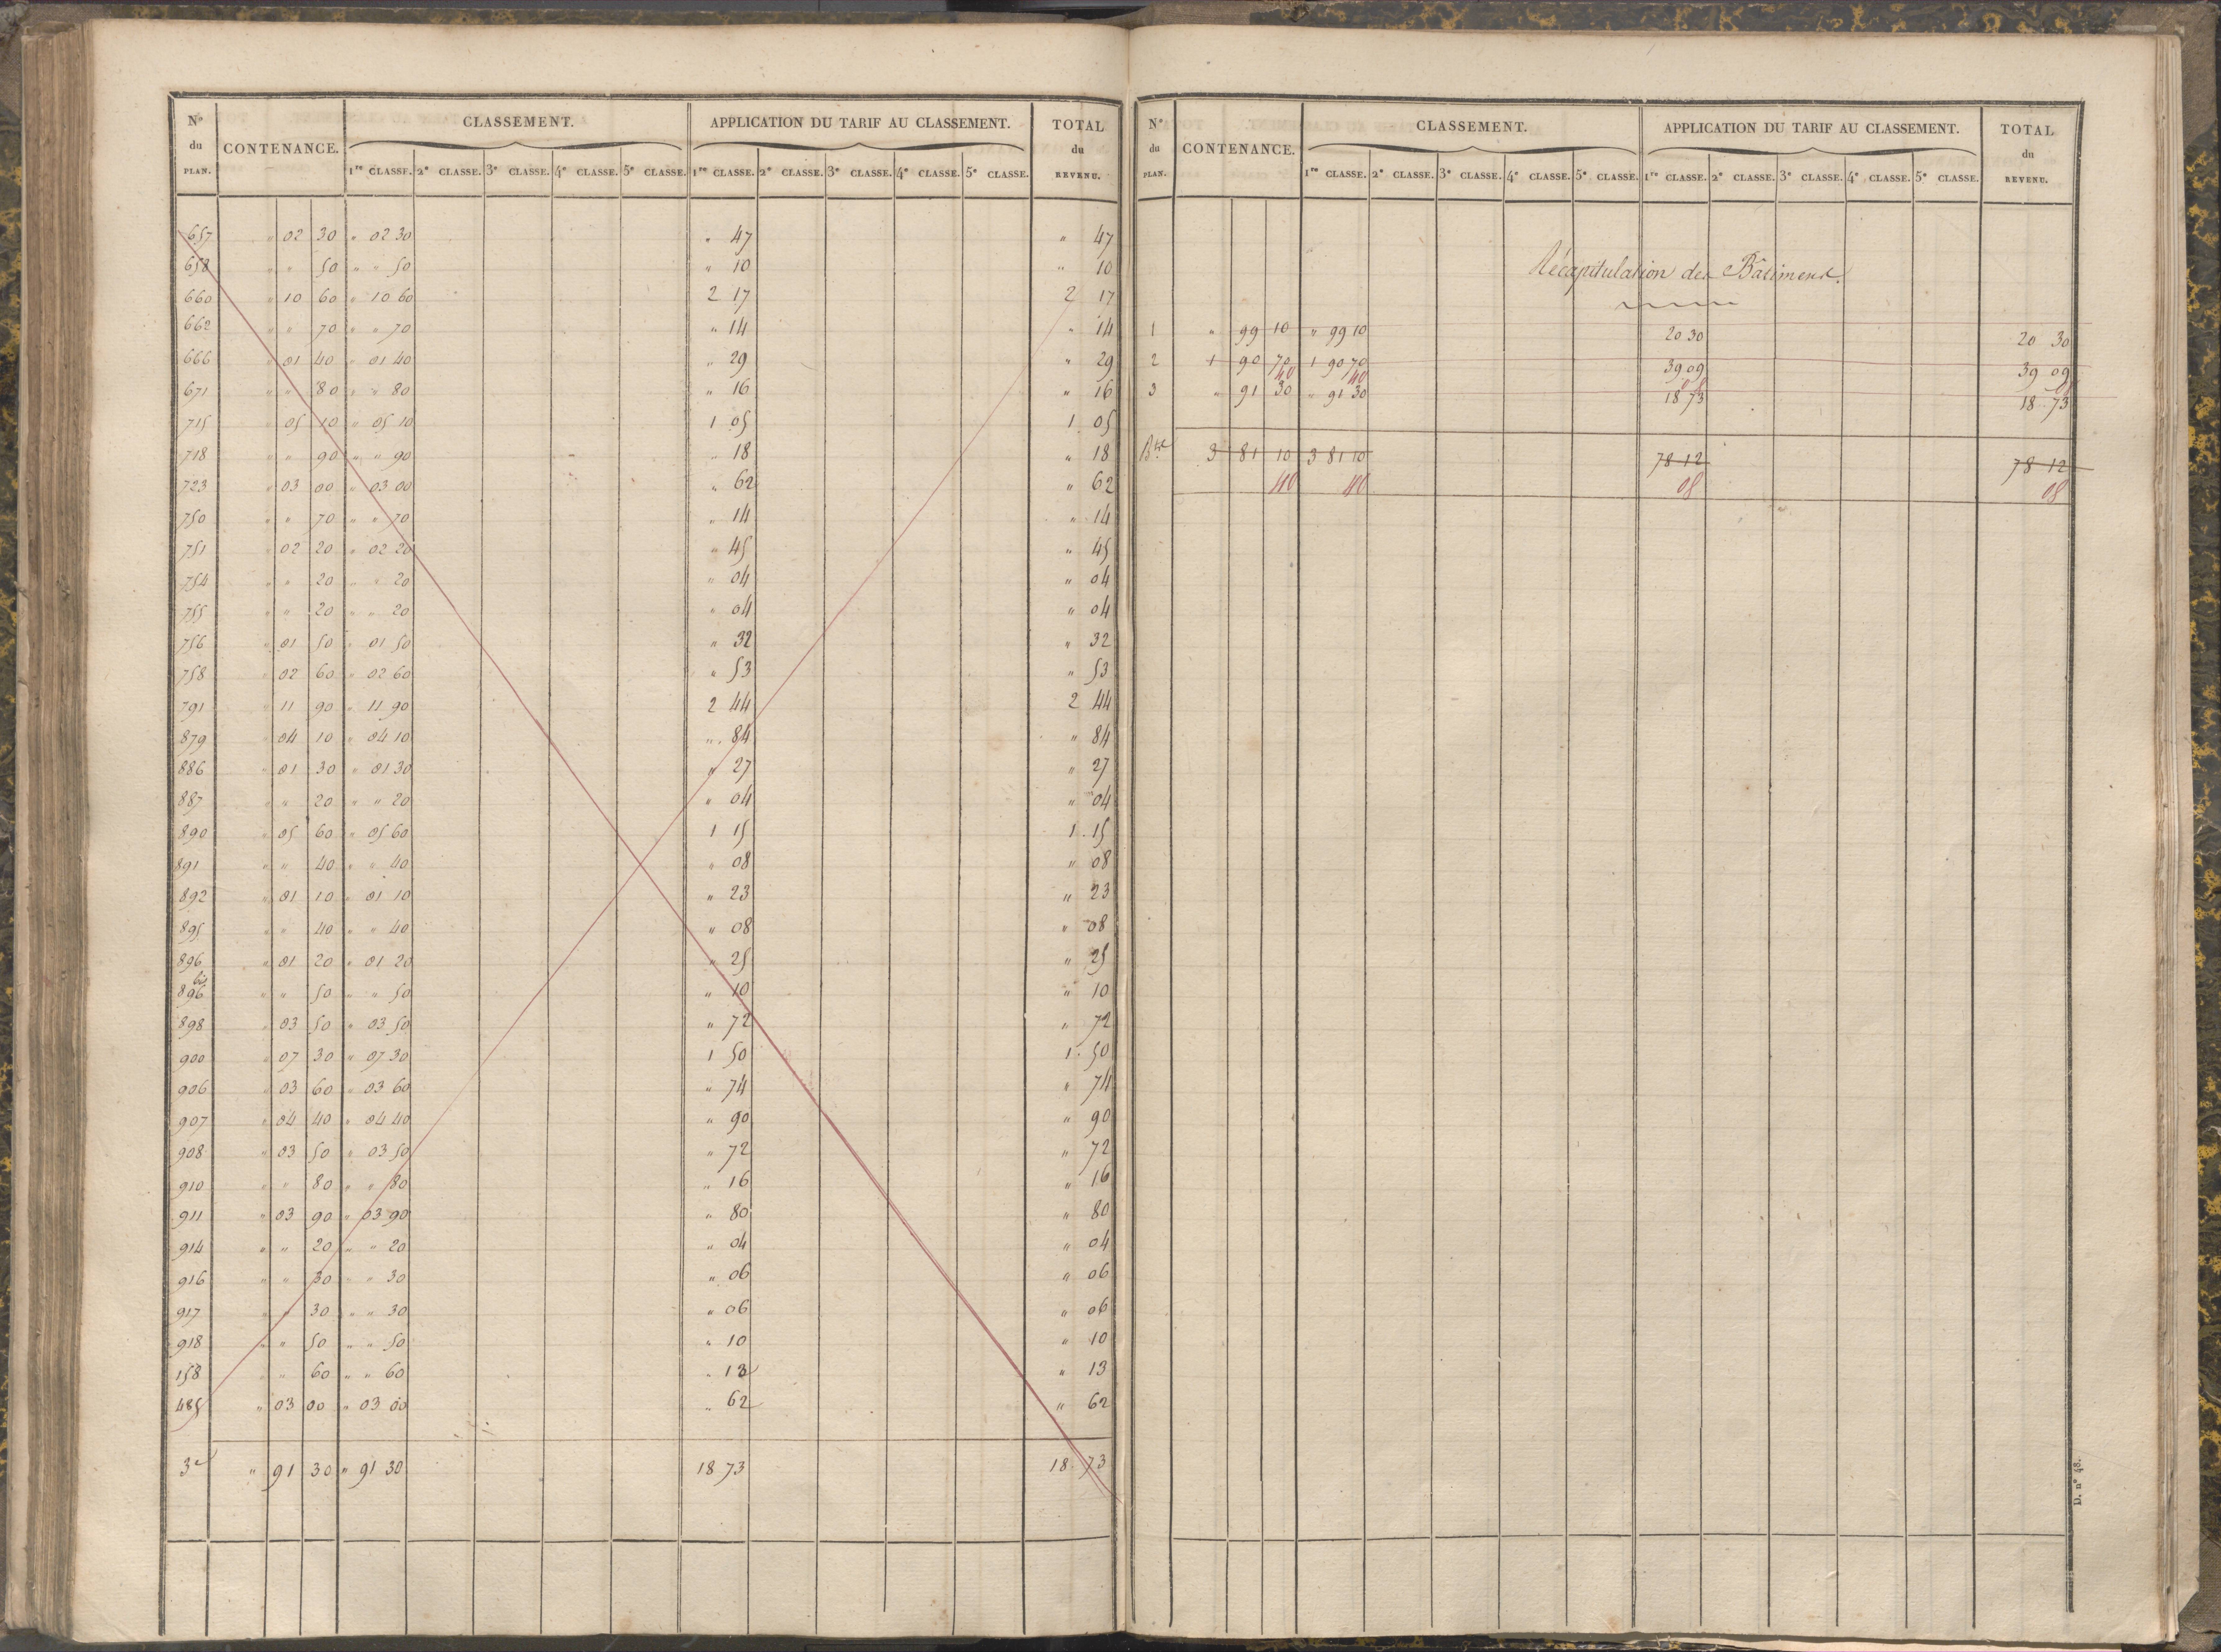 N° du PLAN. CONTENANCE. CLASSEMENT. APPLICATION DU TARIF AU CLASSEMENT. TOTAL du REVENU.
1re CLASSE. 2e CLASSE. 3e CLASSE. 4e CLASSE. 5e CLASSE. 1re CLASSE. 2e CLASSE. 3e CLASSE. 4e CLASSE. 5e CLASSE.
657 " 02 30 " 02 30 " 47 " 47
658 " " 50 " " 50 " 10 " 10
660 " 10 60 " 10 60 2 17 2 17
662 " " 70 " " 70 " 14 " 14
666 " 01 40 " 01 40 " 29 " 29
671 " " 80 " " 80 " 16 " 16
715 " 05 10 " 05 10 1 05 1 05
718 " " 90 " " 90 " 18 " 18
723 " 03 00 " 03 00 " 62 " 62
750 " " 70 " " 70 " 14 " 14
751 " 02 20 " 02 20 " 45 " 45
754 " " 20 " " 20 " 04 " 04
755 " " 20 " " 20 " 04 " 04
756 " 01 50 " 01 50 " 32 " 32
758 " 02 60 " 02 60 " 53 " 53
791 " 11 90 " 11 90 2 44 2 44
879 " 04 10 " 04 10 " 84 " 84
886 " 01 30 " 01 30 " 27 " 27
887 " " 20 " " 20 " 04 " 04
890 " 05 60 " 05 60 1 15 1 15
891 " " 40 " " 40 " 08 " 08
892 " 01 10 " 01 10 " 23 " 23
895 " " 40 " " 40 " 08 " 08
896 " 01 20 " 01 20 " 25 " 25
896 bis " " 50 " " 50 " 10 " 10
898 " 03 50 " 03 50 " 72 " 72
900 " 07 30 " 07 30 1 50 1 50
906 " 03 60 " 03 60 " 74 " 74
907 " 04 40 " 04 40 " 90 " 90
908 " 03 50 " 03 50 " 72 " 72
910 " " 80 " " 80 " 16 " 16
911 " 03 90 " 03 90 " 80 " 80
914 " " 20 " " 20 " 04 " 04
916 " " 30 " " 30 " 06 " 06
917 " " 30 " " 30 " 06 " 06
918 " " 50 " " 50 " 10 " 10
158 " " 60 " " 60 " 13 " 13
485 " 03 00 " 03 00 " 62 " 62
3e " 91 30 " 91 30 18 73 18 73
N° du PLAN. CONTENANCE. CLASSEMENT. APPLICATION DU TARIF AU CLASSEMENT. TOTAL du REVENU.
1re CLASSE. 2e CLASSE. 3e CLASSE. 4e CLASSE. 5e CLASSE. 1re CLASSE. 2e CLASSE. 3e CLASSE. 4e CLASSE. 5e CLASSE.
Récapitulation des Bâtimens.
1 " 99 10 " 99 10 20 30 20 30
2 1 90 70 1 90 70 39 09 39 09
40 40 05 05
3 " 91 30 " 91 30 18 73 18 73
3 81 10 3 81 10 78 12 78 12
40 40 08 08
D. n° 48.